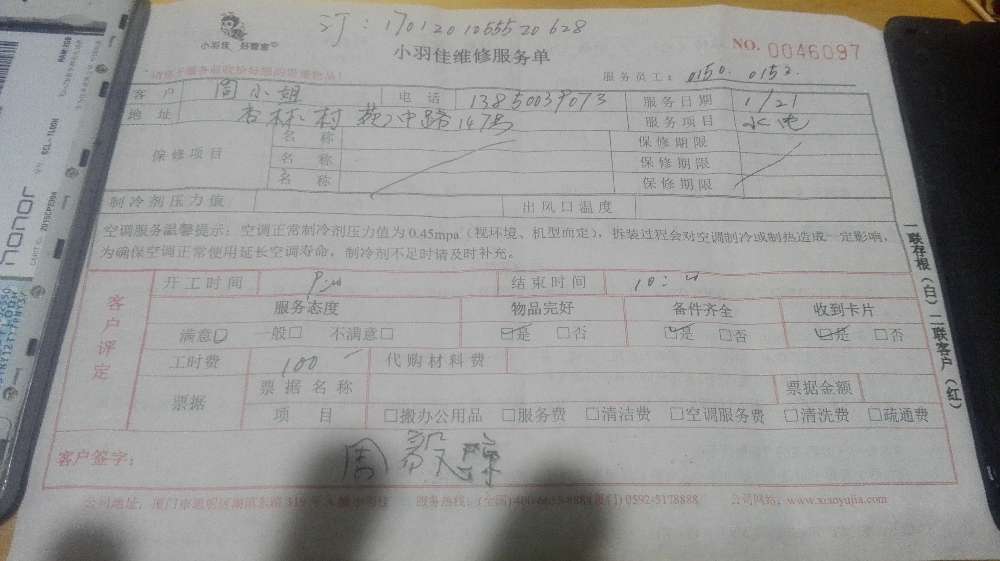 小羽佳 好管家
订：17012010555520628
小羽佳维修服务单
NO. 0046097
服务员工：0150. 0152.
客户 周小姐 电话 13850039073 服务日期 1/21
地址 杏林村苑中路147号 服务项目 水电
保修项目 名称 保修期限
名称 保修期限
名称 保修期限
制冷剂压力值 出风口温度
空调服务温馨提示：空调正常制冷剂压力值为0.45mpa（视环境、机型而定），拆装过程会对空调制冷或制热造成一定影响，
为确保空调正常使用延长空调寿命，制冷剂不足时请及时补充。
客户评定
开工时间 结束时间
服务态度 物品完好 备件齐全 收到卡片
满意□ 一般□ 不满意□ □是 □否 □是 □否 □是 □否
工时费 100 代购材料费
票据 票据名称 票据金额
项目 □搬办公用品 □服务费 □清洁费 □空调服务费 □清洗费 □疏通费
客户签字：周
公司地址：厦门市思明区湖滨东路319号 服务热线：(全国) (厦门) 0592-5178888 公司网站：www.xiaoyujia.com
一联存根（白）二联客户（红）
honor